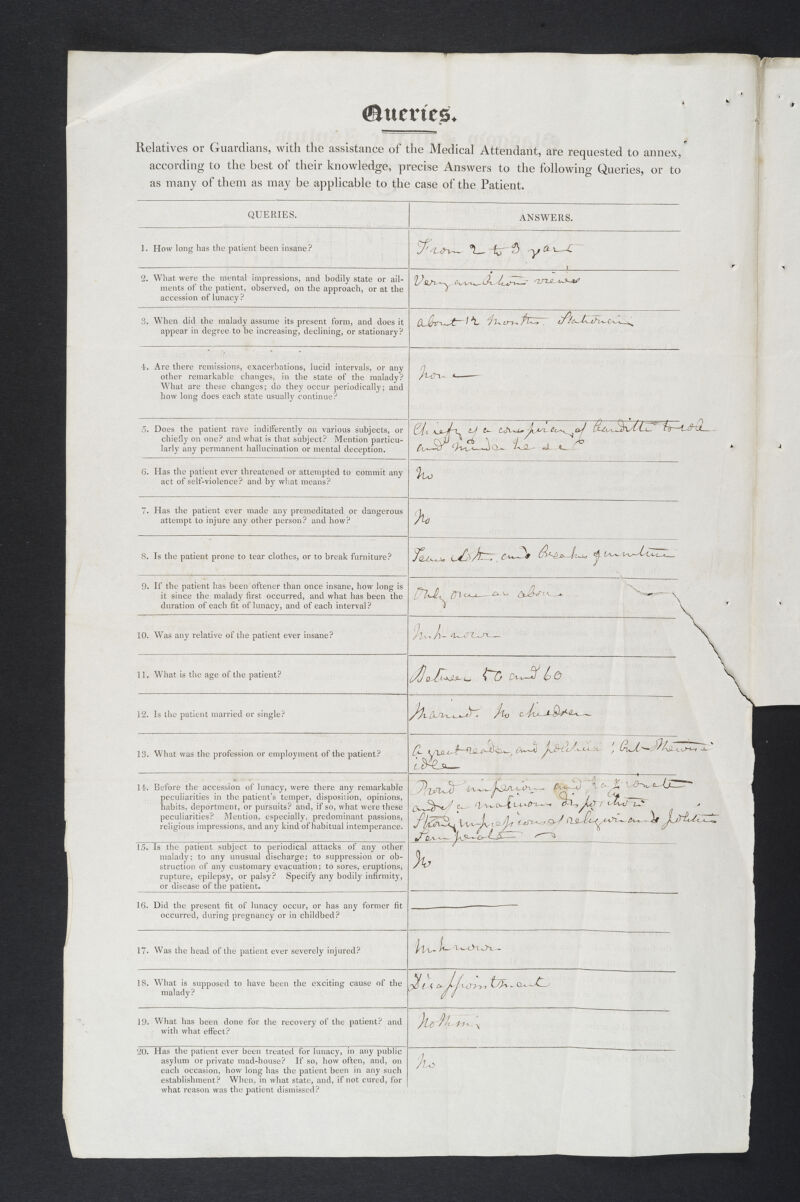 Queries.
Relatives or Guardians, with the assistance of the Medical Attendant, are requested to annex,
according to the best of their knowledge, precise Answers to the following Queries, or to
as many of them as may be applicable to the case of the Patient.
QUERIES.
ANSWERS.
1. How long has the patient been insane?
From 2 to 3 years
2. What were the mental impressions, and bodily state or ail-
ments of the patient, observed, on the approach, or at the
accession of lunacy?
Very ambitious views
3. When did the malady assume its present form, and does it
appear in degree to be increasing, declining, or stationary?
about 12 Months. Stationary
4. Are there remissions, exacerbations, lucid intervals, or any
other remarkable changes, in the state of the malady?
What are these changes; do they occur periodically; and
how long does each state usually continue?
None
5. Does the patient rave indifferently on various subjects, or
chiefly on one? and what is that subject? Mention particu-
larly any permanent hallucination or mental deception.
Chiefly of a conspiracy of banditti to rob
and Murder he &c
6. Has the patient ever threatened or attempted to commit any
act of self-violence? and by what means?
No
7. Has the patient ever made any premeditated or dangerous
attempt to injure any other person? and how?
No
8. Is the patient prone to tear clothes, or to break furniture?
Tears cloths and breaks furniture
9. If the patient has been oftener than once insane, how long is
it since the malady first occurred, and what has been the
duration of each fit of lunacy, and of each interval?
Only once as above
10. Was any relative of the patient ever insane?
Unknown
11. What is the age of the patient?
Between 50 and 60
12. Is the patient married or single?
Married. No children
13. What was the profession or employment of the patient?
a great reader, and politician; but otherwise
idle
14. Before the accession of lunacy, were there any remarkable
peculiarities in the patient's temper, disposition, opinions,
habits, deportment, or pursuits? and, if so, what were these
peculiarities? Mention, especially, predominant passions,
religious impressions, and any kind of habitual intemperance.
Proud imperious and passionate
and of a disposition
Strong impressions of religion and politics
Temperate
15. Is the patient subject to periodical attacks of any other
malady; to any unusual discharge; to suppression or ob-
struction of any customary evacuation; to sores, eruptions,
rupture, epilepsy, or palsy? Specify any bodily infirmity,
or disease of the patient.
No
16. Did the present fit of lunacy occur, or has any former fit
occurred, during pregnancy or in childbed?
17. Was the head of the patient ever severely injured?
Unknown
18. What is supposed to have been the exciting cause of the
malady?
Disappointment
19. What has been done for the recovery of the patient? and
with what effect?
Nothing
20. Has the patient ever been treated for lunacy, in any public
asylum or private mad-house? If so, how often, and, on
each occasion, how long has the patient been in any such
establishment? When, in what state, and, if not cured, for
what reason was the patient dismissed?
No